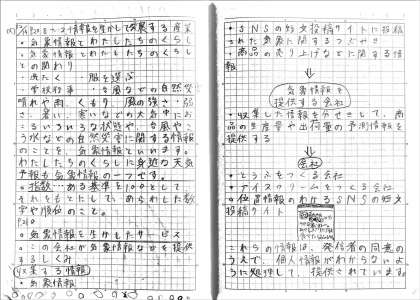 情報を生かして発展する産業
・気象情報とわたしたちのくらし
・気象情報とわたしたちのくらし
との関わり
・出たく 服を選ぶ
・学校行事 ・台風などの自然災
晴れや雨、くもり、風の強さ・弱
さ、暑い、寒いなどの大気中にお
こるいろいろな状態や、台風やこ
う水などの自然災害に関する情報
のことを、気象情報といいます。
わたしたちのくらしに身近な天気
予報も気象情報の一つです。
・指数…ある基準を100として
それをもとにして、あらわした数
字や順位のこと。
P210
・気象情報を生かしたサービス
・この会社が気象情報などを提供
するしくみ
収集する情報
・気象情報
・SNSの短文投稿サイトに投稿
された気象に関するつぶやき
・商品の売り上げなどに関する情
報
気象情報を
提供する会社
・収集した情報を分せきして、商
品の生産量や出荷量の予測情報を
提供する
会社
・とうふをつくる会社
・アイスクリームをつくる会社
・位置情報のわかるSNSの短文
投稿サイト
これらの情報は、発信者の同意の
うえで、個人情報がわからないよ
うに処理して、提供されています。